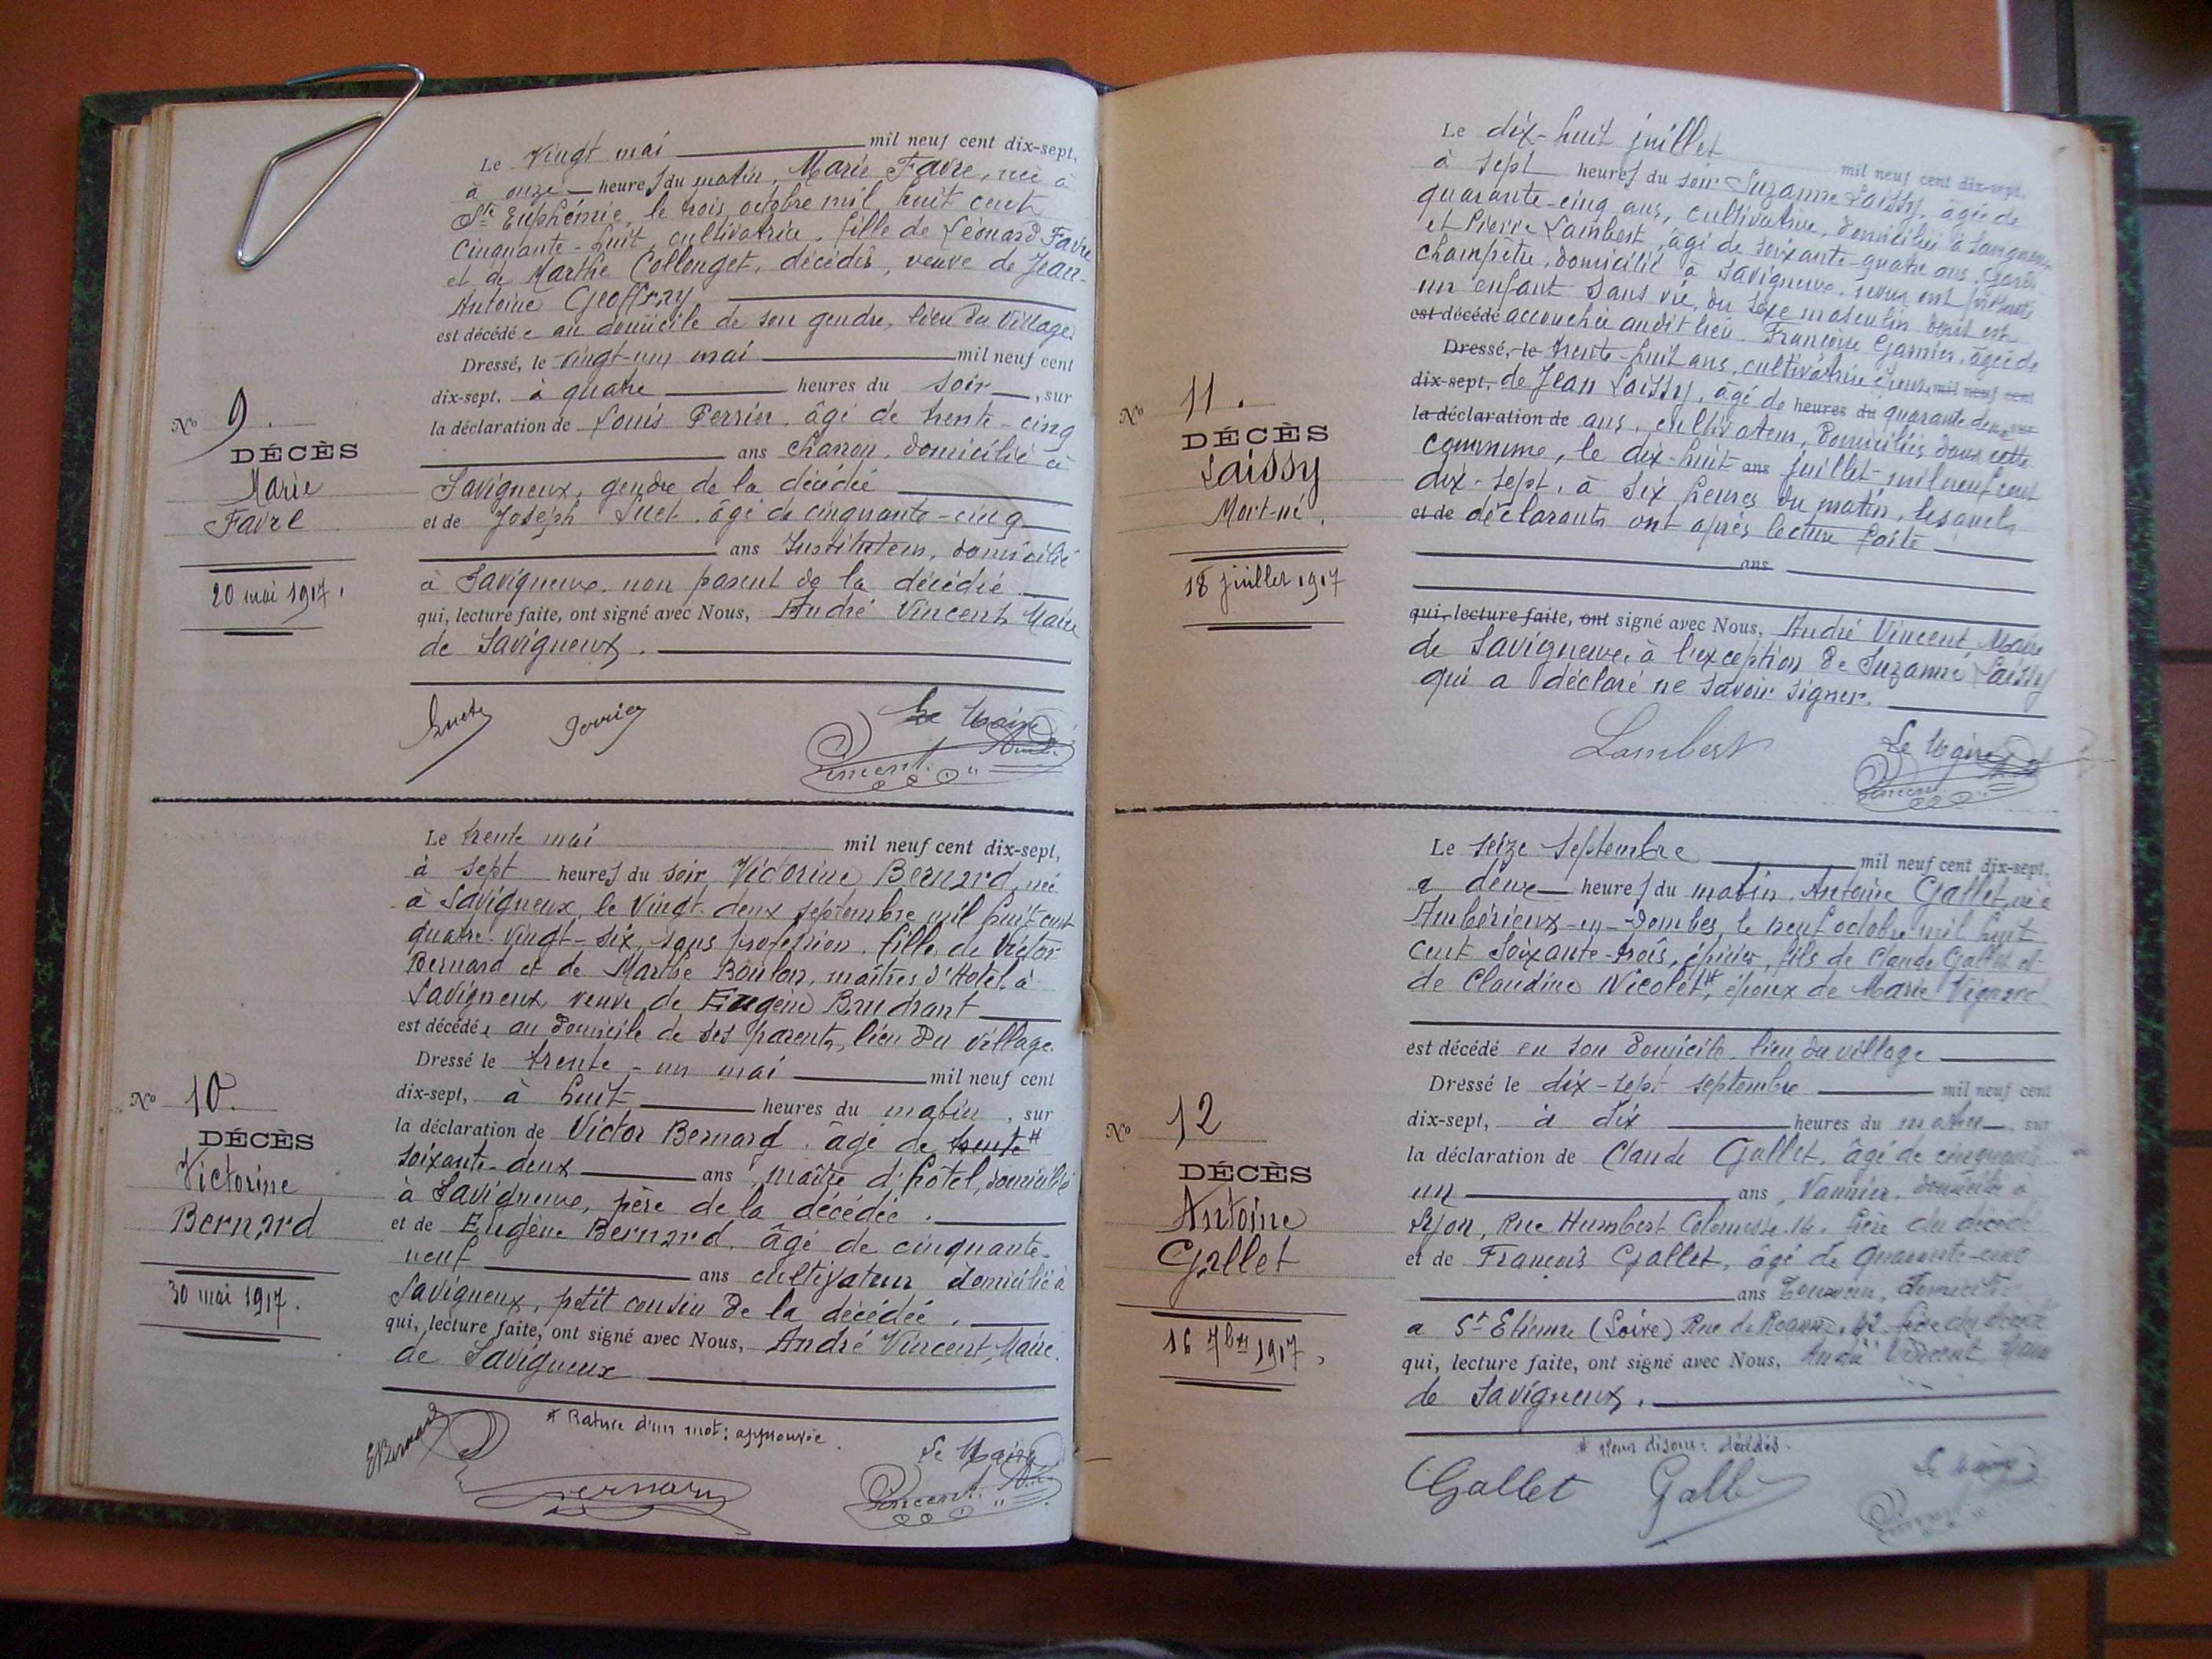 Le vingt mai mil neuf cent dix-sept,
à onze heures du matin, Marie Favre, née à
Ste Euphémie, le trois octobre mil huit cent
cinquante-huit, cultivatrice, fille de Léonard Favre
et de Marthe Collonget, décédés, veuve de Jean-
Antoine Geoffray
est décédée au domicile de son gendre, lieu du Village.
Dressé, le vingt-un mai mil neuf cent
dix-sept, à quatre heures du soir, sur
la déclaration de Louis Perrier, âgé de trente-cinq
ans charron, domicilié à
Savigneux, gendre de la décédée
et de Joseph Suet, âgé de cinquante-cinq
ans Instituteur, domicilié
à Savigneux, non parent de la décédée
qui, lecture faite, ont signé avec Nous, André Vincent, Maire
de Savigneux.
No 9.
DÉCÈS
Marie
Favre
20 mai 1917.
Suet Perrier Le Maire
Vincent
Le trente mai mil neuf cent dix-sept,
à sept heures du soir, Victorine Bernard, née
à Savigneux, le vingt-deux septembre mil huit cent
quatre-vingt-six, sans profession, fille de Victor
Bernard et de Marthe Boulon, maîtres d'Hotel, à
Savigneux, veuve de Eugène Brudrant
est décédée au domicile de ses parents, lieu du village.
Dressé le trente-un mai mil neuf cent
dix-sept, à huit heures du matin, sur
la déclaration de Victor Bernard, âgé de trente #
soixante-deux ans, maître d'hôtel, domicilié
à Savigneux, père de la décédée.
et de Eugène Bernard, âgé de cinquante-
neuf ans cultivateur domicilié à
Savigneux, petit cousin de la décédée.
qui, lecture faite, ont signé avec Nous, André Vincent, Maire
de Savigneux
No 10.
DÉCÈS
Victorine
Bernard
30 mai 1917.
# Rature d'un mot: approuvée.
EBernard Bernard Le Maire
Vincent
Le dix-huit juillet mil neuf cent dix-sept,
à sept heures du soir Suzanne Laissy, âgée de
quarante-cinq ans, cultivatrice, domiciliée à Savigneux
et Pierre Lambert, âgé de soixante-quatre ans, Garde
champêtre, domicilié à Savigneux, nous ont présenté
un enfant sans vie, du sexe masculin dont est
est décédé accouchée audit lieu Françoise Garnier, âgée de
Dressé, le trente-huit ans, cultivatrice épouse mil neuf cent
dix-sept, de Jean Laissy, âgé de heures du quarante-deux sur
la déclaration de ans, cultivateur, domiciliés dans cette
commune, le dix-huit ans juillet mil neuf cent
dix-sept, à six heures du matin, lesquels
et de déclarants ont après lecture faite
ans
qui, lecture faite, ont signé avec Nous, André Vincent, Maire
de Savigneux, à l'exception de Suzanne Laissy
qui a déclaré ne savoir signer.
No 11.
DÉCÈS
Laissy
Mort-né.
18 juillet 1917
Lambert Le Maire
Vincent
Le seize septembre mil neuf cent dix-sept,
à deux heures du matin, Antoine Gallet, né à
Ambérieux-en-Dombes, le neuf octobre mil huit
cent soixante-trois, épicier, fils de Claude Gallet et
de Claudine Nicolet #, époux de Marie Vignard
est décédé en son domicile, lieu du village
Dressé le dix-sept septembre mil neuf cent
dix-sept, à dix heures du matin, sur
la déclaration de Claude Gallet, âgé de cinquante
un ans, Vannier, domicilié à
Lyon, Rue Humbert Colomès 14. frère du décédé
et de François Gallet, âgé de quarante-cinq
ans domicilié
à St Etienne (Loire) Rue de Roanne, 42 frère du décédé
qui, lecture faite, ont signé avec Nous, André Vincent, Maire
de Savigneux.
No 12
DÉCÈS
Antoine
Gallet
16 7bre 1917.
# Nous disons: décédés.
Gallet Gallet Le Maire
Vincent